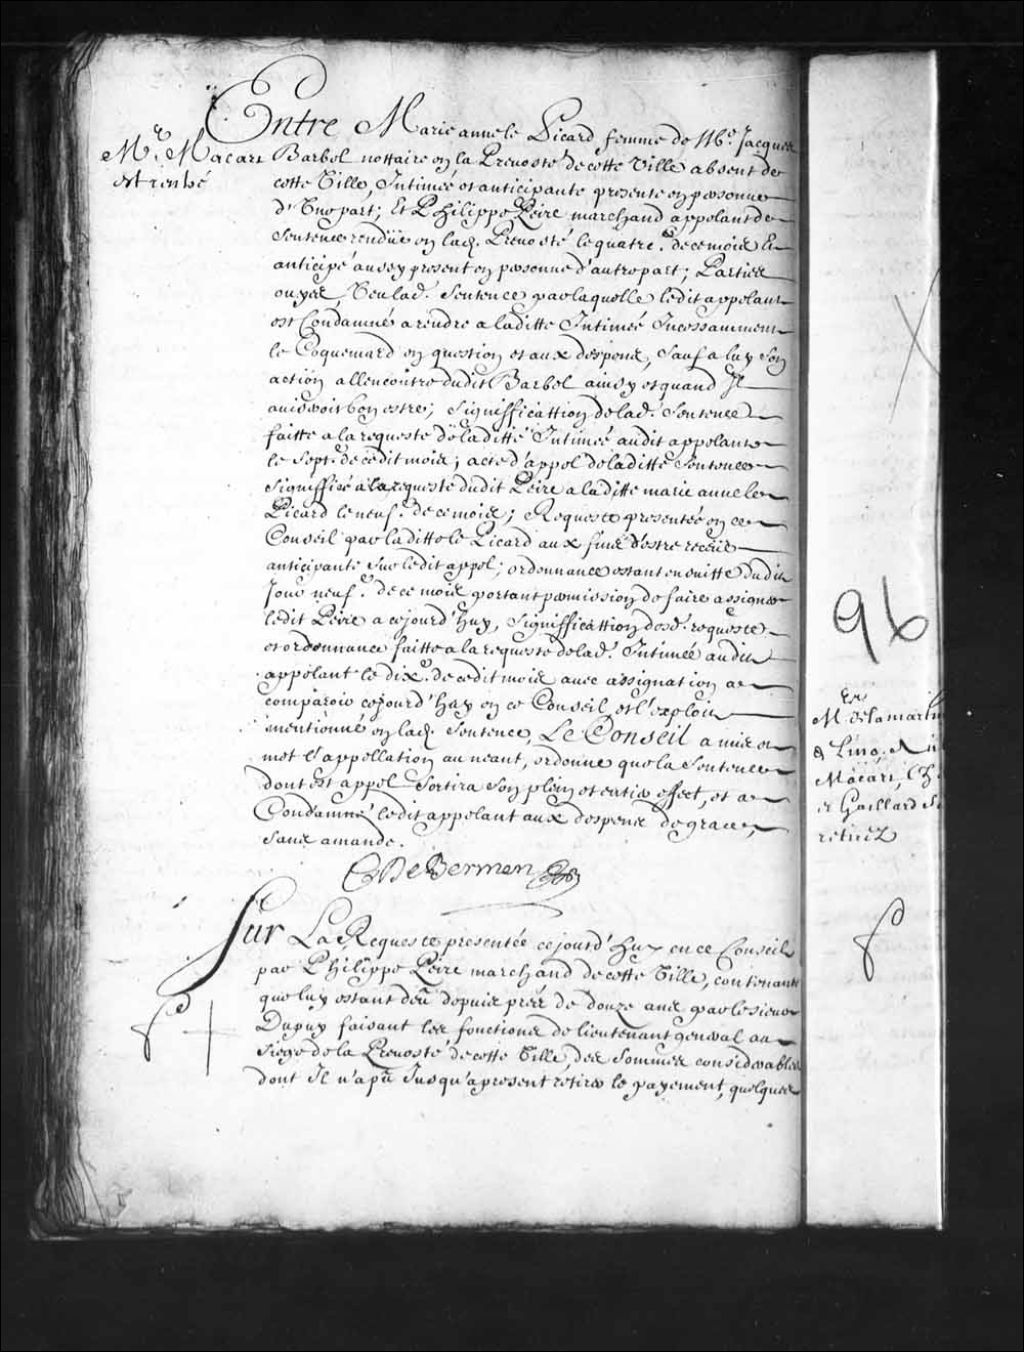 Entre Marie anne le Picard femme de Me. Jacques
Mr. Macart
s'est retiré
Barbel nottaire en la Prevosté de cette Ville absent de
cette Ville, Intimée et anticipante presente en personne
d'Une part; Et Philippe Peire marchand appelant de
Sentence rendüe en lad. Prevosté le quatre.e de ce mois Et
anticipé aussy present en personne d'autre part; Parties
ouyes, Veu lad. Sentence par laquelle ledit appelant
est Condamné a rendre a laditte Intimée Incessamment
le Coquemard en question et aux despens, sauf a luy son
action allencontre dudit Barbel ainsy et quand Il
aviseroit bon estre; Signiffication de lad. Sentence
faitte a la requeste de laditte Intimée audit appelant
le sept.e de cedit mois; acte d'appel de laditte Sentence
signiffié a la requeste dudit Peire a laditte marie anne le
Picard le neuf.e de ce mois; Requeste presentée en ce
Conseil par laditte le Picard aux fins d'estre receüe
anticipante sur ledit appel; ordonnance estant ensuitte dudit
Jour neuf.e de ce mois portant permission de faire assigner
ledit Peire a cejourd'huy, Signiffication desd. requeste
et ordonnance faitte a la requeste de lad. Intimée audit
appelant le dix.e de cedit mois avec assignation a
comparoir cejourd'huy en ce Conseil et l'exploit
mentionné en lad. Sentence, Le Conseil a mis et
met l'appellation au neant, ordonne que la Sentence
dont est appel Sortira Son plein et entier effect, et a
Condamné ledit appelant aux despens de grace,
sans amande.
C De Bermen
Sur La Requeste presentée cejourd'huy en ce Conseil
par Philippe Peire marchand de cette Ville, contenant
que luy estant deü depuis prés de douze ans par le sieur
Dupuy faisant les fonctions de lieutenant general au
siege de la Prevosté de cette Ville, des Sommes considerables
dont Il n'a pû Jusqu'a present retirer le payement, quelques
96
Mrs. de la martin
Macart, Ch
et Gaillard Se
retirez